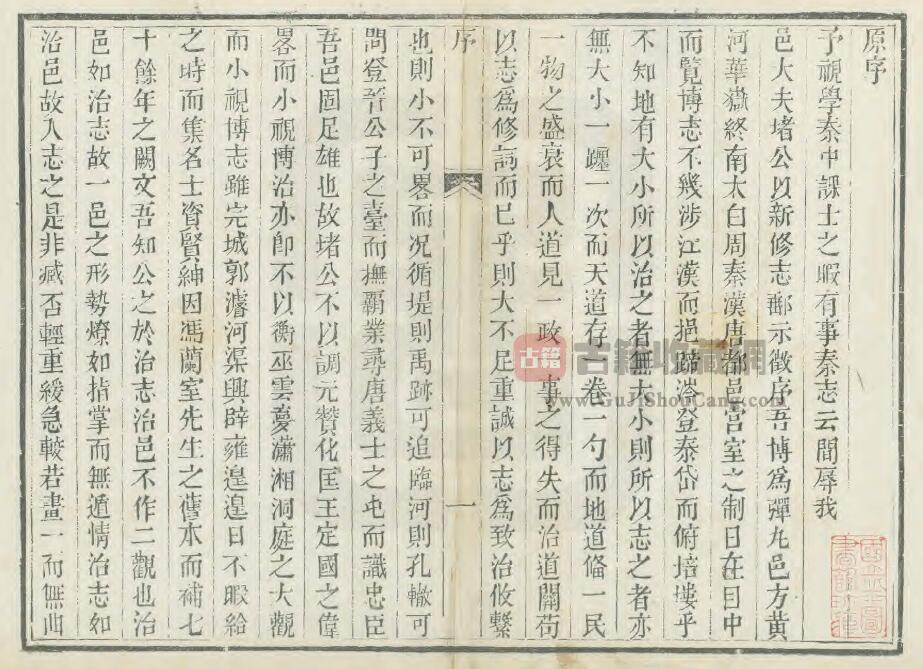 原序
予視學秦中課士之暇有事秦志云間辱我
邑大夫堵公以新修志郵示徵序吾博為彈丸邑方黃
河華嶽終南太白周秦漢唐都邑宮室之制日在目中
而覽博志不幾涉江漢而挹蹄涔登泰岱而俯培塿乎
不知地有大小所以治之者無大小則所以志之者亦
無大小一躔一次而天道存一卷一勺而地道備一民
一物之盛衰而人道見一政一事之得失而治道關苟
以志為修詞而已乎則大不足重誠以志為致治攸繫
序
一
也則小不可畧而况循堤則禹跡可追臨河則孔轍可
問登晉公子之臺而撫霸業尋唐義士之屯而識忠臣
吾邑固足雄也故堵公不以調元贊化匡王定國之偉
畧而小視博治亦卽不以衡巫雲夢瀟湘洞庭之大觀
而小視博志雖完城郭濬河渠興辟雍遑遑日不暇給
之時而集名士資賢紳因馮蘭室先生之舊本而補七
十餘年之闕文吾知公之於治志治邑不作二觀也治
邑如治志故一邑之形勢燎如指掌而無遁情治志如
治邑故入志之是非臧否輕重緩急較若畫一而無曲
古籍
古籍收藏網
www.GuJiShooCang.com